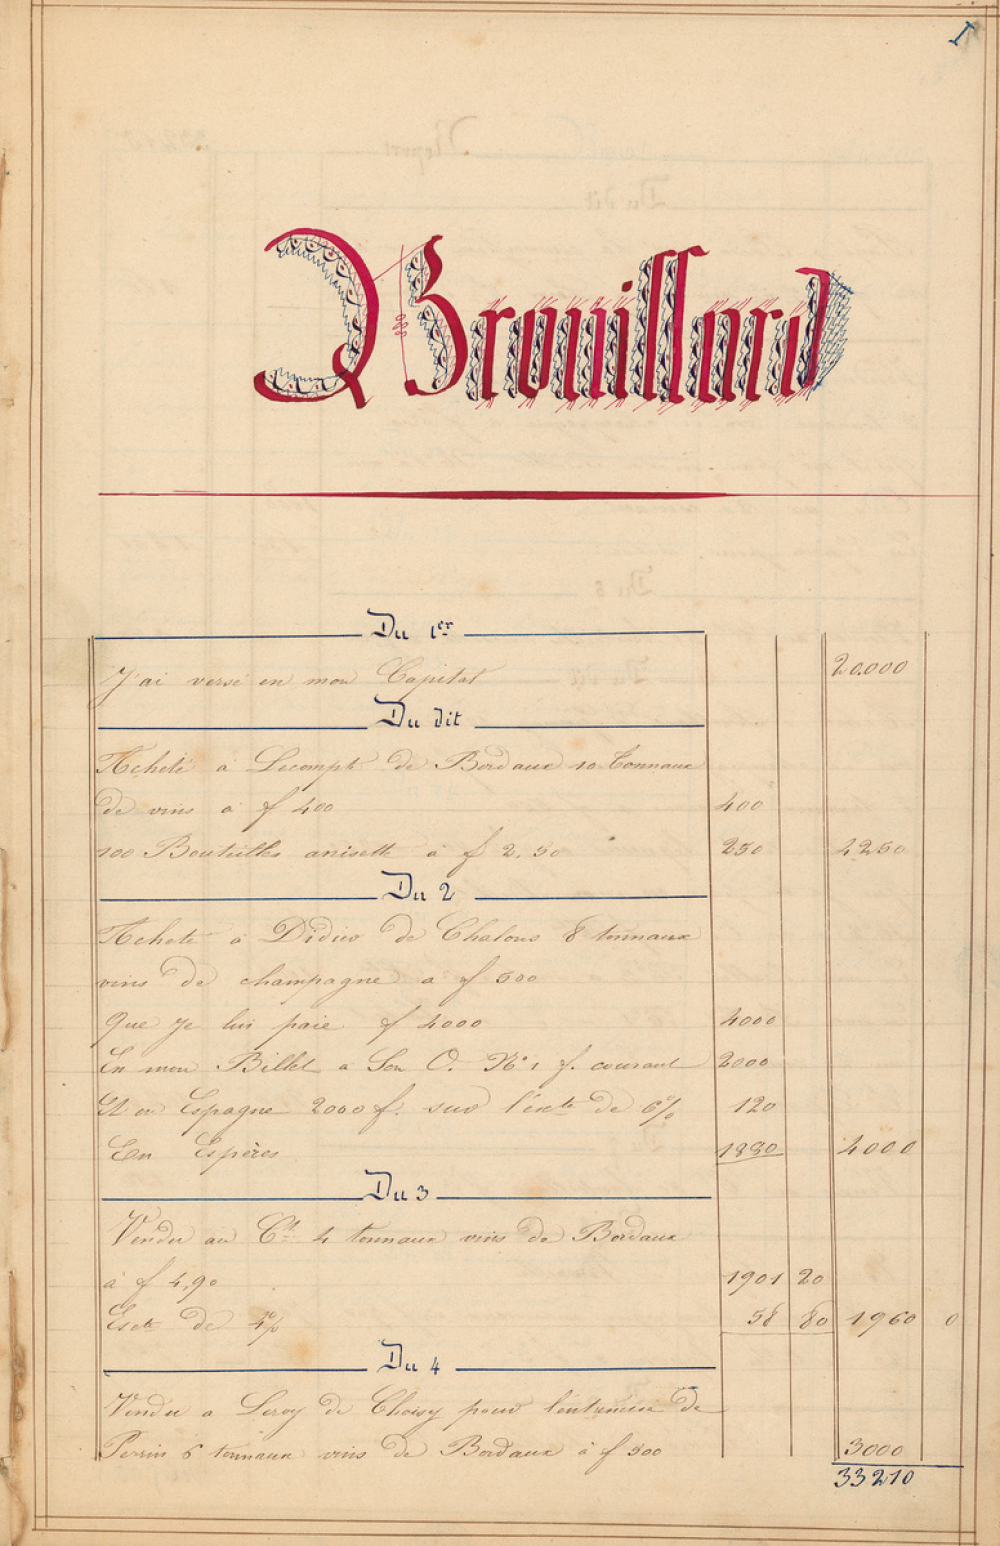 I
Brouillard
Du 1er
J'ai versé en mon Capital 20.000
Du dit
Acheté à Lecompte de Bordaux 10 Tonnaux
de vins à f 400 400
100 Bouteilles anisette à f 2.50 250 4250
Du 2
Acheté à Didier de Chalons 8 tonnaux
vins de champagne a f 500
Que Je lui paie f 4000 4000
En mon Billet a Son O. No 1 f. courant 2000
Et en Espagne 2000 f. sur l'escte de 6% 120
En Espères 1880 4000
Du 3
Vendu au Ct 4 tonnaux vins de Bordaux
à f 4,90 1901 20
Escte de 4% 58 80 1960 0
Du 4
Vendu a Leroy de Choisy pour l'entremise de
Perrin 6 tonnaux vins de Bordaux à f 500 3000
33210